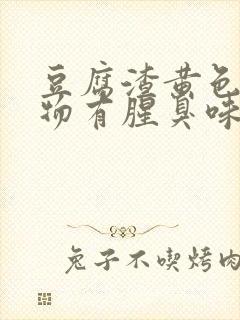 豆腐渣黄色
物有腥臭味
兔子不喫烤肉